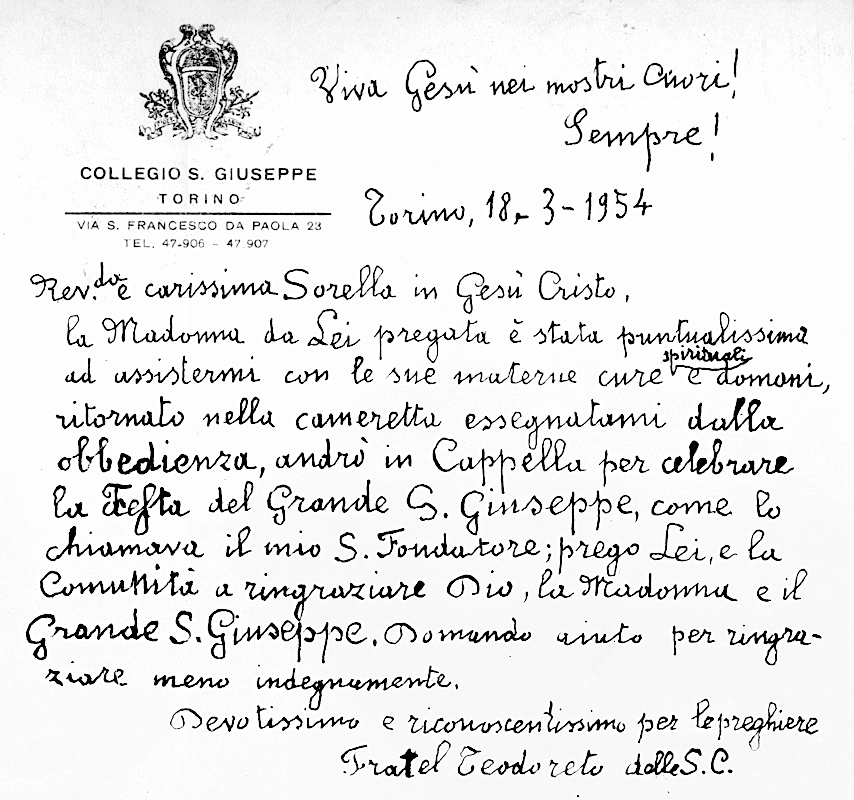 Viva Gesù nei nostri Cuori!
Sempre!
COLLEGIO S. GIUSEPPE
TORINO
VIA S. FRANCESCO DA PAOLA 23
TEL. 47-906 - 47 907
Torino, 18-3-1954
Rev.da e carissima Sorella in Gesù Cristo,
la Madonna da Lei pregata è stata puntualissima
ad assistermi con le sue materne cure spirituali e domani,
ritornato nella cameretta essegnatami dalla
obbedienza, andrò in Cappella per celebrare
la Festa del Grande S. Giuseppe, come lo
chiamava il mio S. Fondatore; prego Lei, e la
Comunità a ringraziare Dio, la Madonna e il
Grande S. Giuseppe. Domando aiuto per ringra-
ziare meno indegnamente.
Devotissimo e riconoscentissimo per le preghiere
Fratel Teodoreto delle S.C.